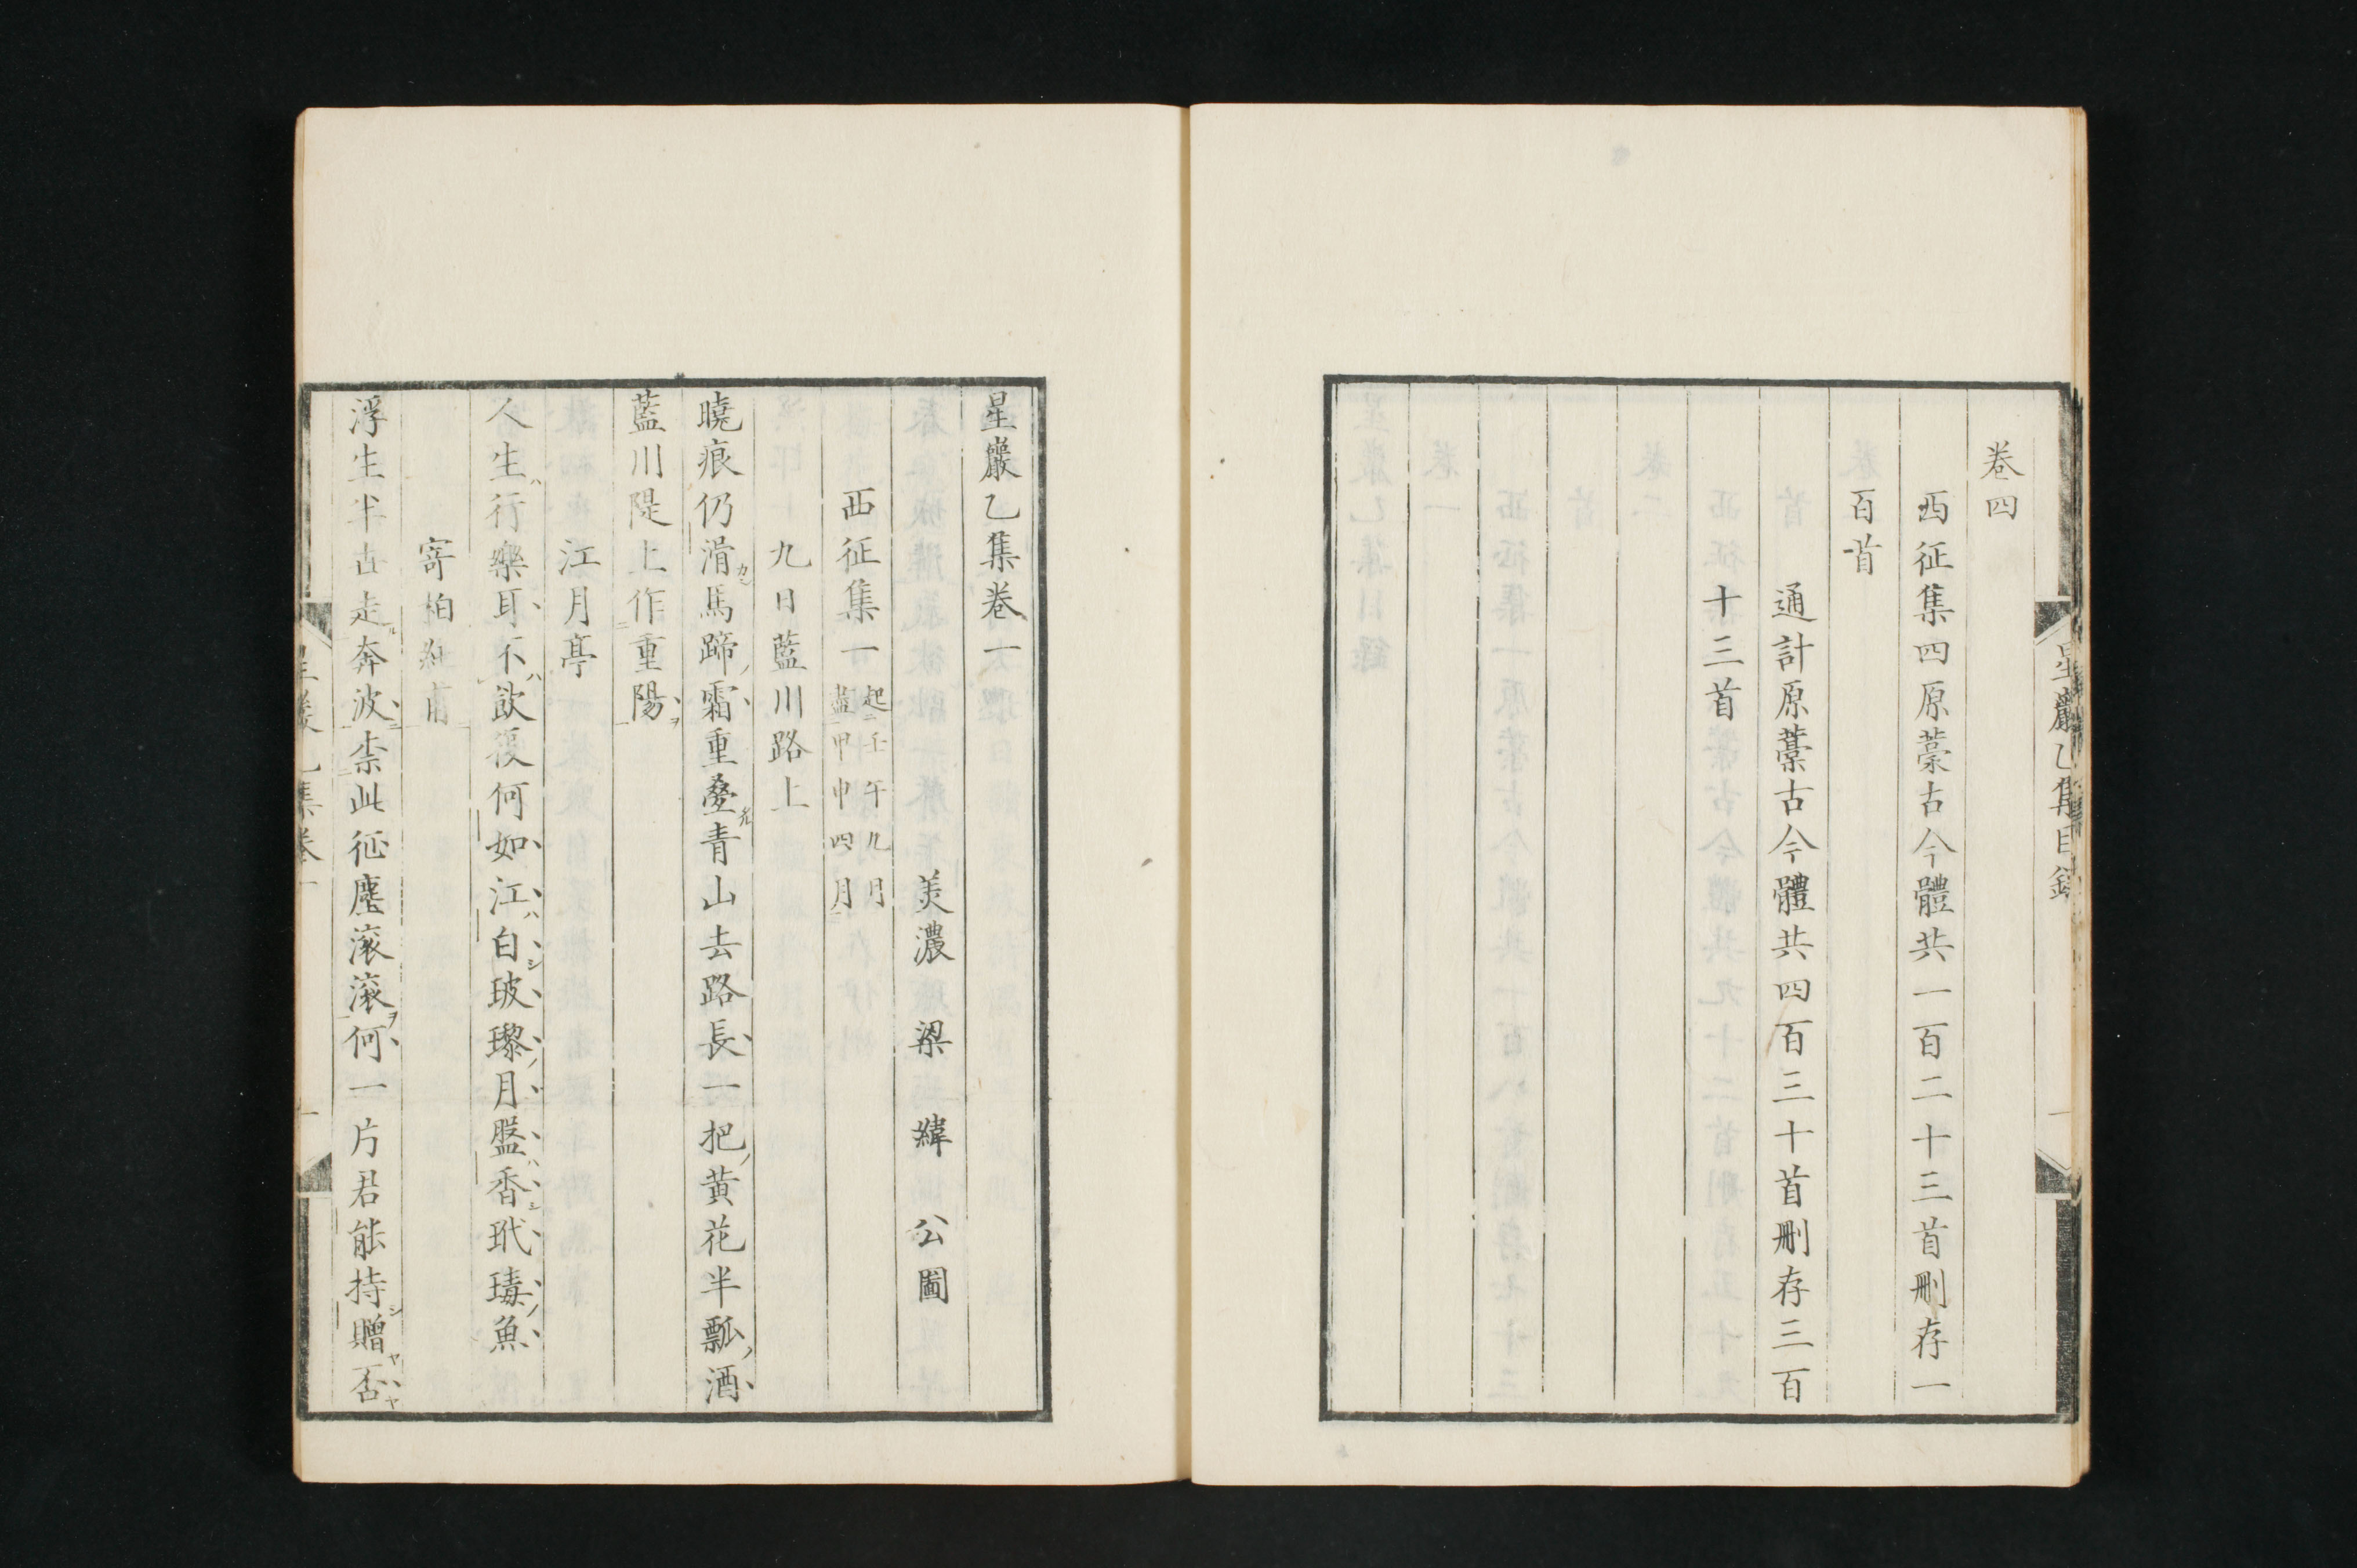 卷四
西征集四原藁古今體共一百二十三首刪存一
百首
通計原藁古今體共四百三十首刪存三百
十三首
星巖乙集目錄
一
星巖乙集卷一
美濃 梁 緯 公圖
西征集一 起壬午九月
盡甲申四月
九日藍川路上
曉痕仍滑馬蹄霜重疊青山去路長一把黃花半瓢酒
藍川隄上作重陽
江月亭
人生行樂耳不飲復何如江白玻瓈月盤香玳瑇魚
寄柏 甫
浮生半古走奔波柰此征塵滚滚何一片君能持贈否
星巖乙集卷一
一